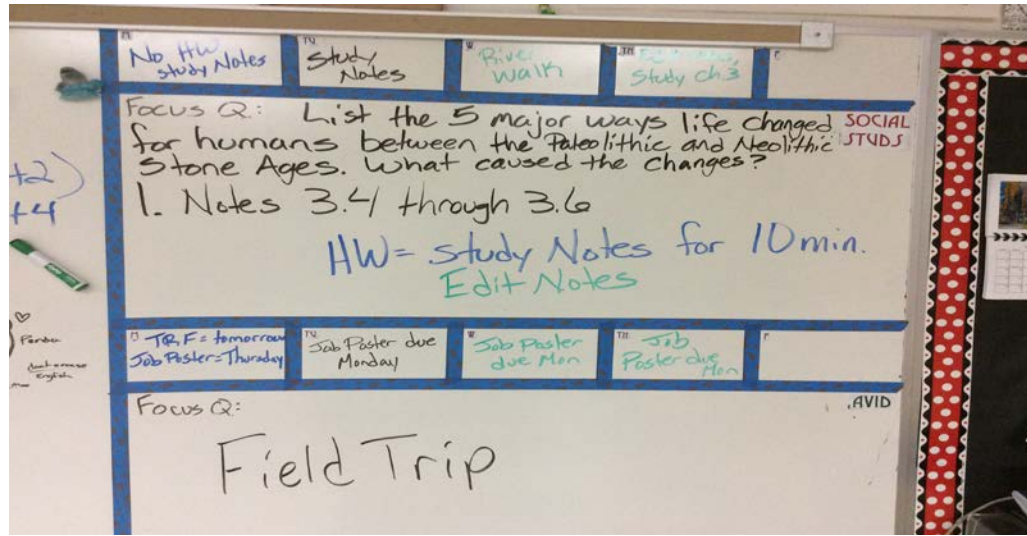 M
No HW
study Notes
TU
Study
Notes
W
River
Walk
TH
Study ch.3
F
Focus Q: List the 5 major ways life changed
for humans between the Paleolithic and Neolithic
Stone Ages. What caused the changes?
SOCIAL
STUDS
1. Notes 3.4 through 3.6
HW= study Notes for 10 min.
Edit Notes
+2)
+4
Panda
English
TRF = tomorrow
Job Poster = Thursday
TU
Job Poster due
Monday
W
Job Poster
due Mon
TH
Job
Poster due
Mon
F
Focus Q:
AVID
Field Trip